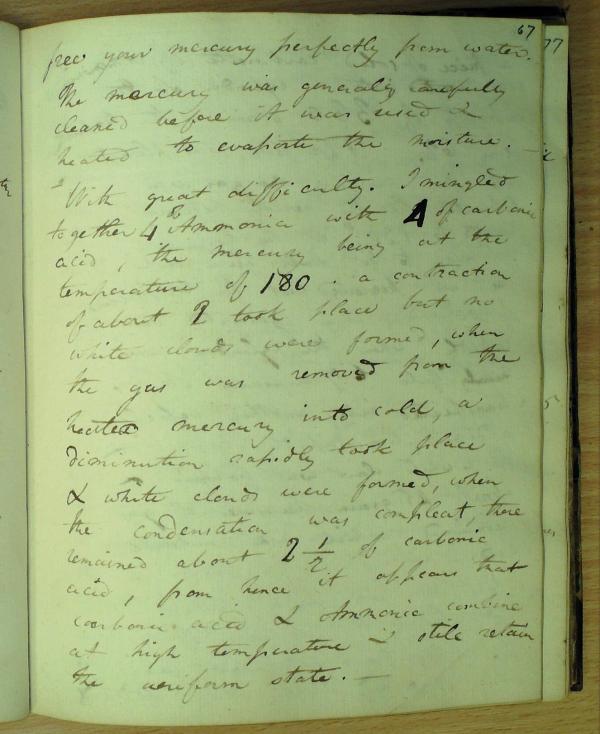 67
free your mercury perfectly from water.
The mercury was generally carefully
cleaned before it was used &
heated to evaporte the moisture. —
With great difficulty. I mingled
together 4 Ammonia with 4 of carbonic
acid, the mercury being at the
temperature of 180. a contraction
of about 2 took place but no
white clouds were formed, when
the gas was removed from the
heated mercury into cold, a
diminution rapidly took place
& white clouds were formed, when
the condensation was compleat, there
remained about 2 1/2 of carbonic
acid, from hence it appears that
carbonic acid & Ammonia combine
at high temperature & still retain
the aeriform state. —
77